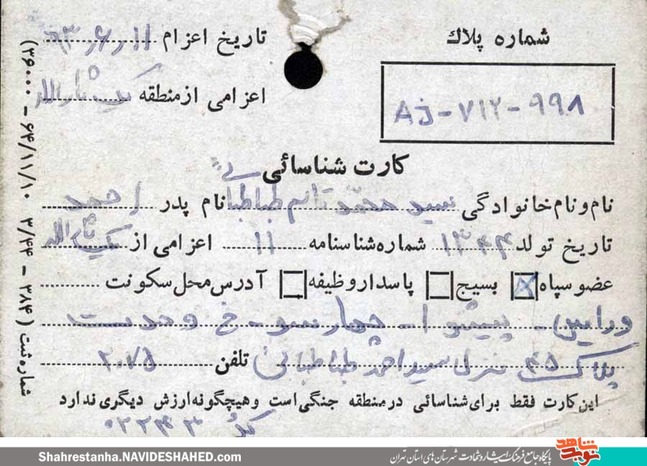 شماره پلاك
تاریخ اعزام ۶۳٫۶٫۱۱
AJ-۷۱۲-۹۹۸
اعزامی از منطقه ثارالله
کارت شناسائی
نام و نام خانوادگی سید محمد قاسم طباطبائی نام پدر احمد
تاریخ تولد ۱۳۴۴ شماره شناسنامه ۱۱ اعزامی از ثارالله
عضو سپاه ☒ بسیج □ پاسدار وظیفه □ آدرس محل سکونت
ورامین - پیشوا - چهارسو - خ وحدت
پلاک ۴۵ منزل سید احمد طباطبائی تلفن ۲۰۷۵
این کارت فقط برای شناسائی در منطقه جنگی است و هیچگونه ارزش دیگری ندارد
کد ۰۲۲۴۳
شماره ثبت (۳۸۴ - ۳/۴۴ ۶۴/۱۱/۱۰ - ۳۶۰۰۰)
Shahrestanha.NAVIDESHAHED.com
پایگاه جامع فرهنگ ایثار و شهادت شهرستان های استان تهران
نوید شاهد